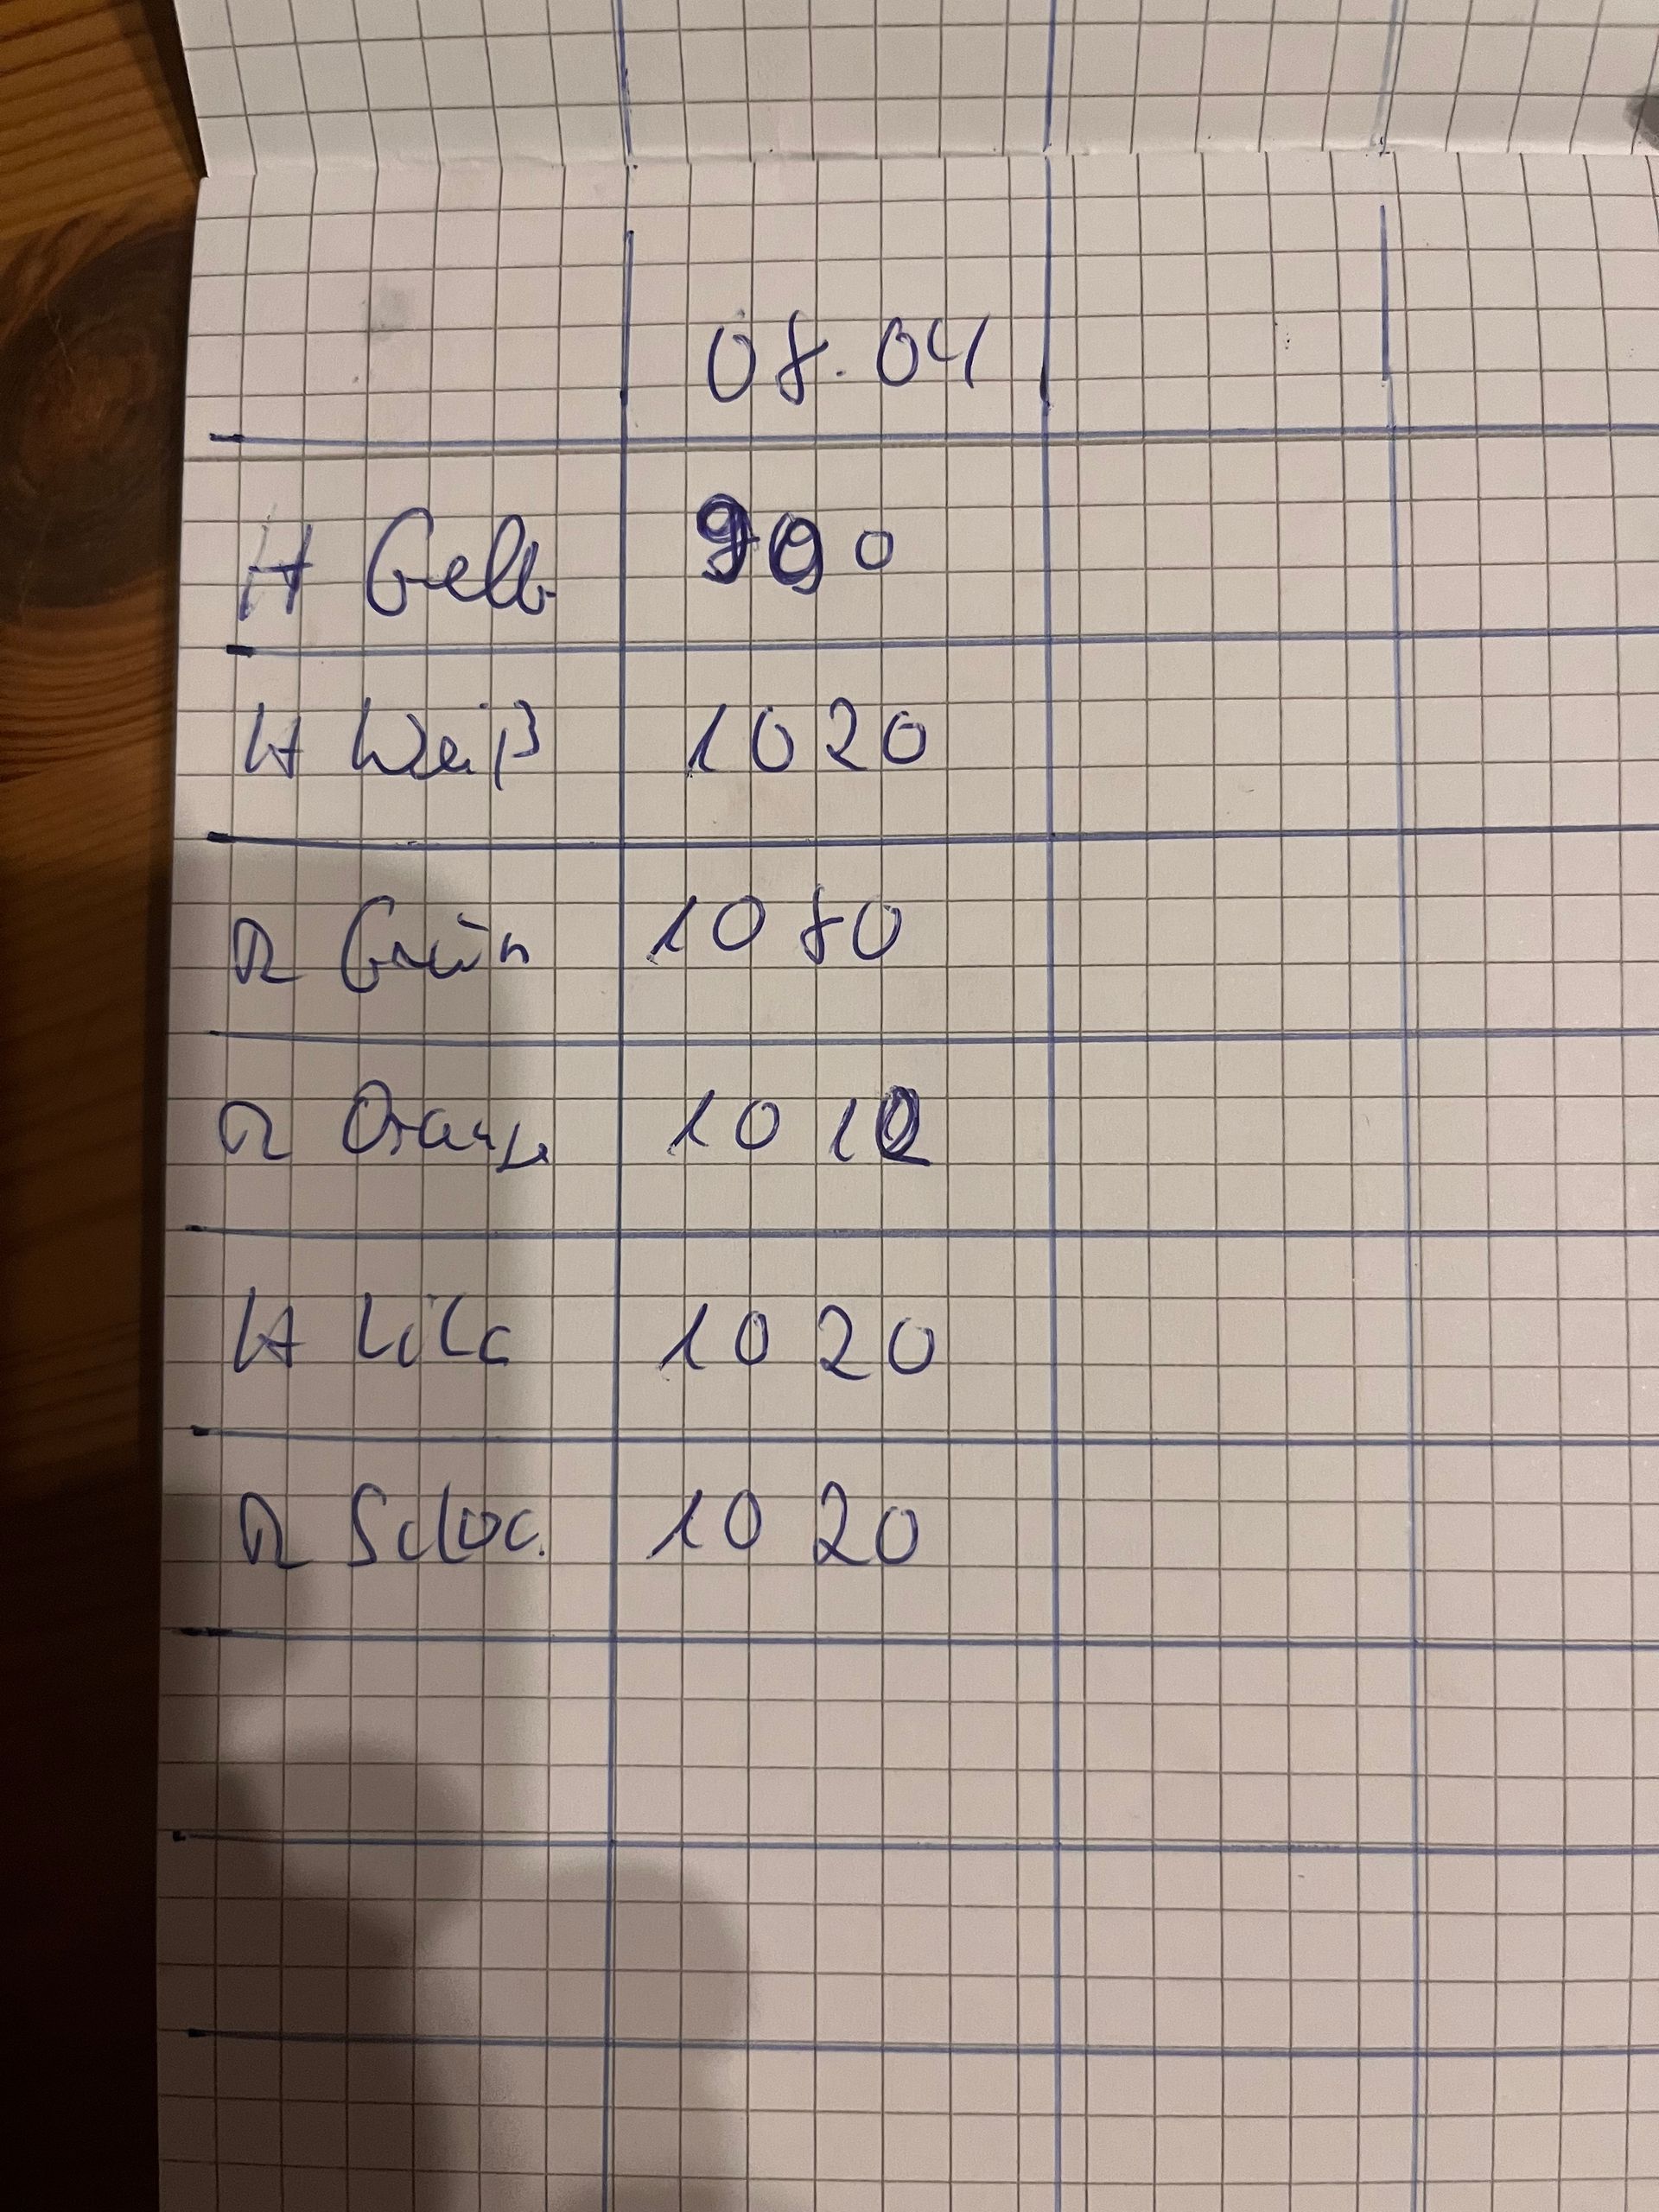 08.04
H Gelb 990
H Weiß 1020
R Grün 1080
R Orange
H Lila 1020
R 1020